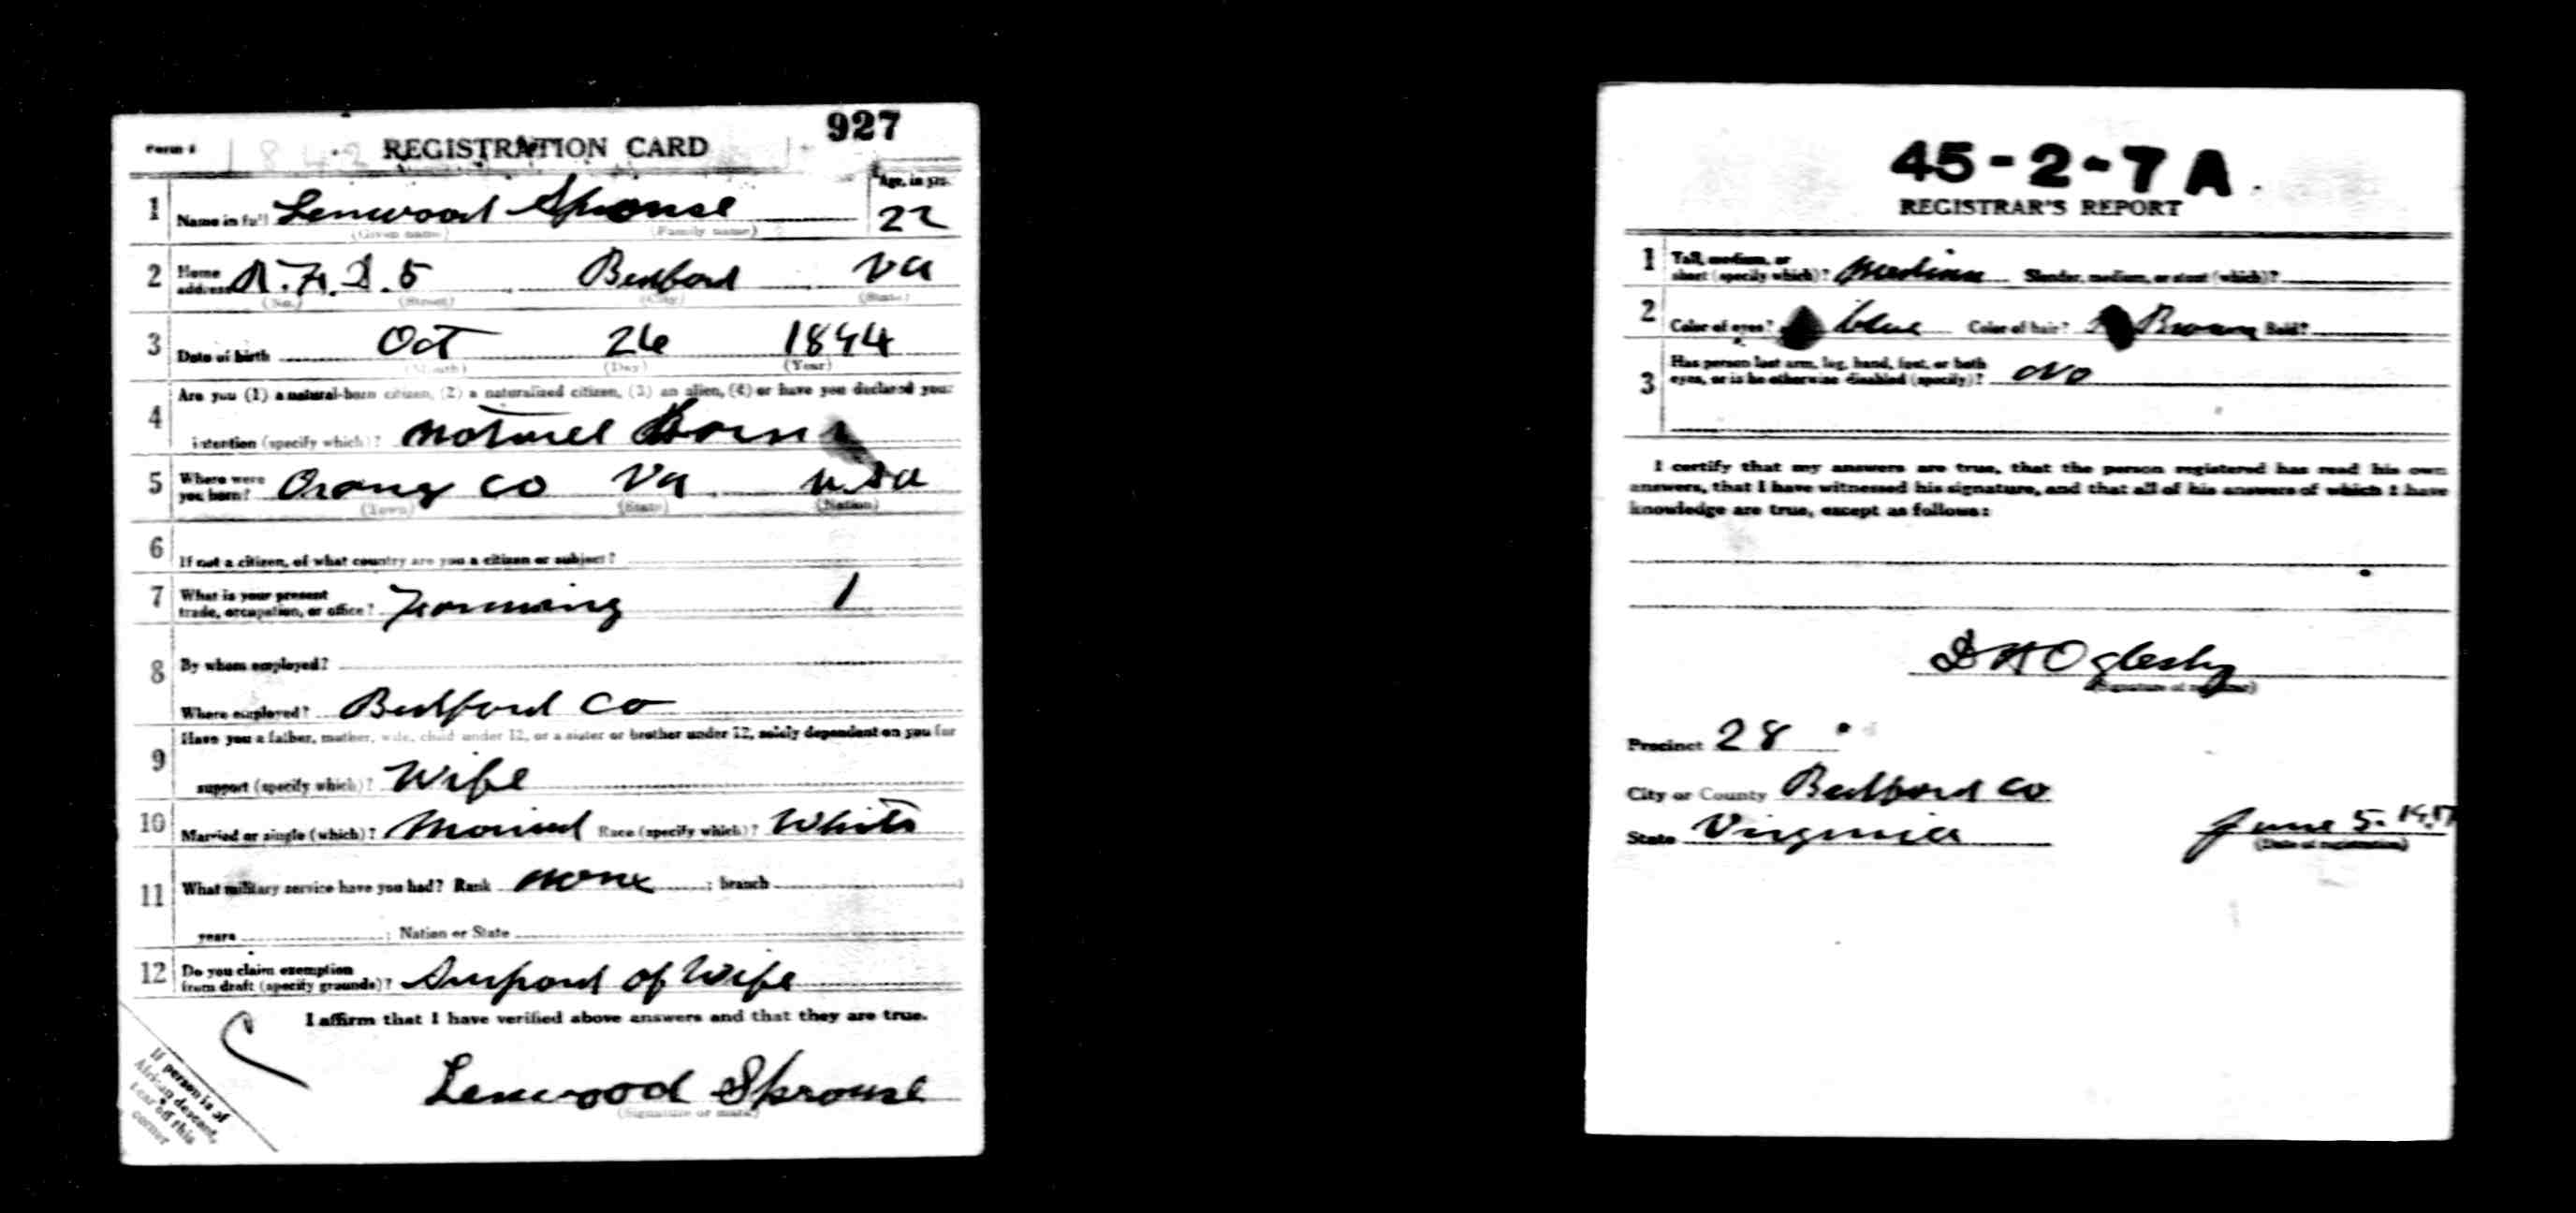 Form 1 REGISTRATION CARD 927
1 Name in full Lenwood Sprouse Age, in yrs. 22
(Given name) (Family name)
2 Home address R.F.D. 5 Bedford Va
(No.) (Street) (City) (State)
3 Date of birth Oct 26 1894
(Month) (Day) (Year)
4 Are you (1) a natural-born citizen, (2) a naturalized citizen, (3) an alien, (4) or have you declared your
intention (specify which)? Naturel Born
5 Where were you born? Orang Co Va U.S.A
(Town) (State) (Nation)
6 If not a citizen, of what country are you a citizen or subject?
7 What is your present trade, occupation, or office? Farming 1
8 By whom employed?
Where employed? Bedford Co
9 Have you a father, mother, wife, child under 12, or a sister or brother under 12, solely dependent on you for
support (specify which)? Wife
10 Married or single (which)? Married Race (specify which)? White
11 What military service have you had? Rank none ; branch
years ; Nation or State
12 Do you claim exemption from draft (specify grounds)? Support of Wife
I affirm that I have verified above answers and that they are true.
Lenwood Sprouse
(Signature or mark)
If person is of
African descent,
tear off this
corner
45-2-7 A
REGISTRAR'S REPORT
1 Tall, medium, or short (specify which)? medium Slender, medium, or stout (which)?
2 Color of eyes? blue Color of hair? Brown Bald?
3 Has person lost arm, leg, hand, foot, or both eyes, or is he otherwise disabled (specify)? No
I certify that my answers are true, that the person registered has read his own
answers, that I have witnessed his signature, and that all of his answers of which I have
knowledge are true, except as follows:
D H Oglesby
(Signature of registrar)
Precinct 28
City or County Bedford Co
State Virginia June 5. 1917
(Date of registration)